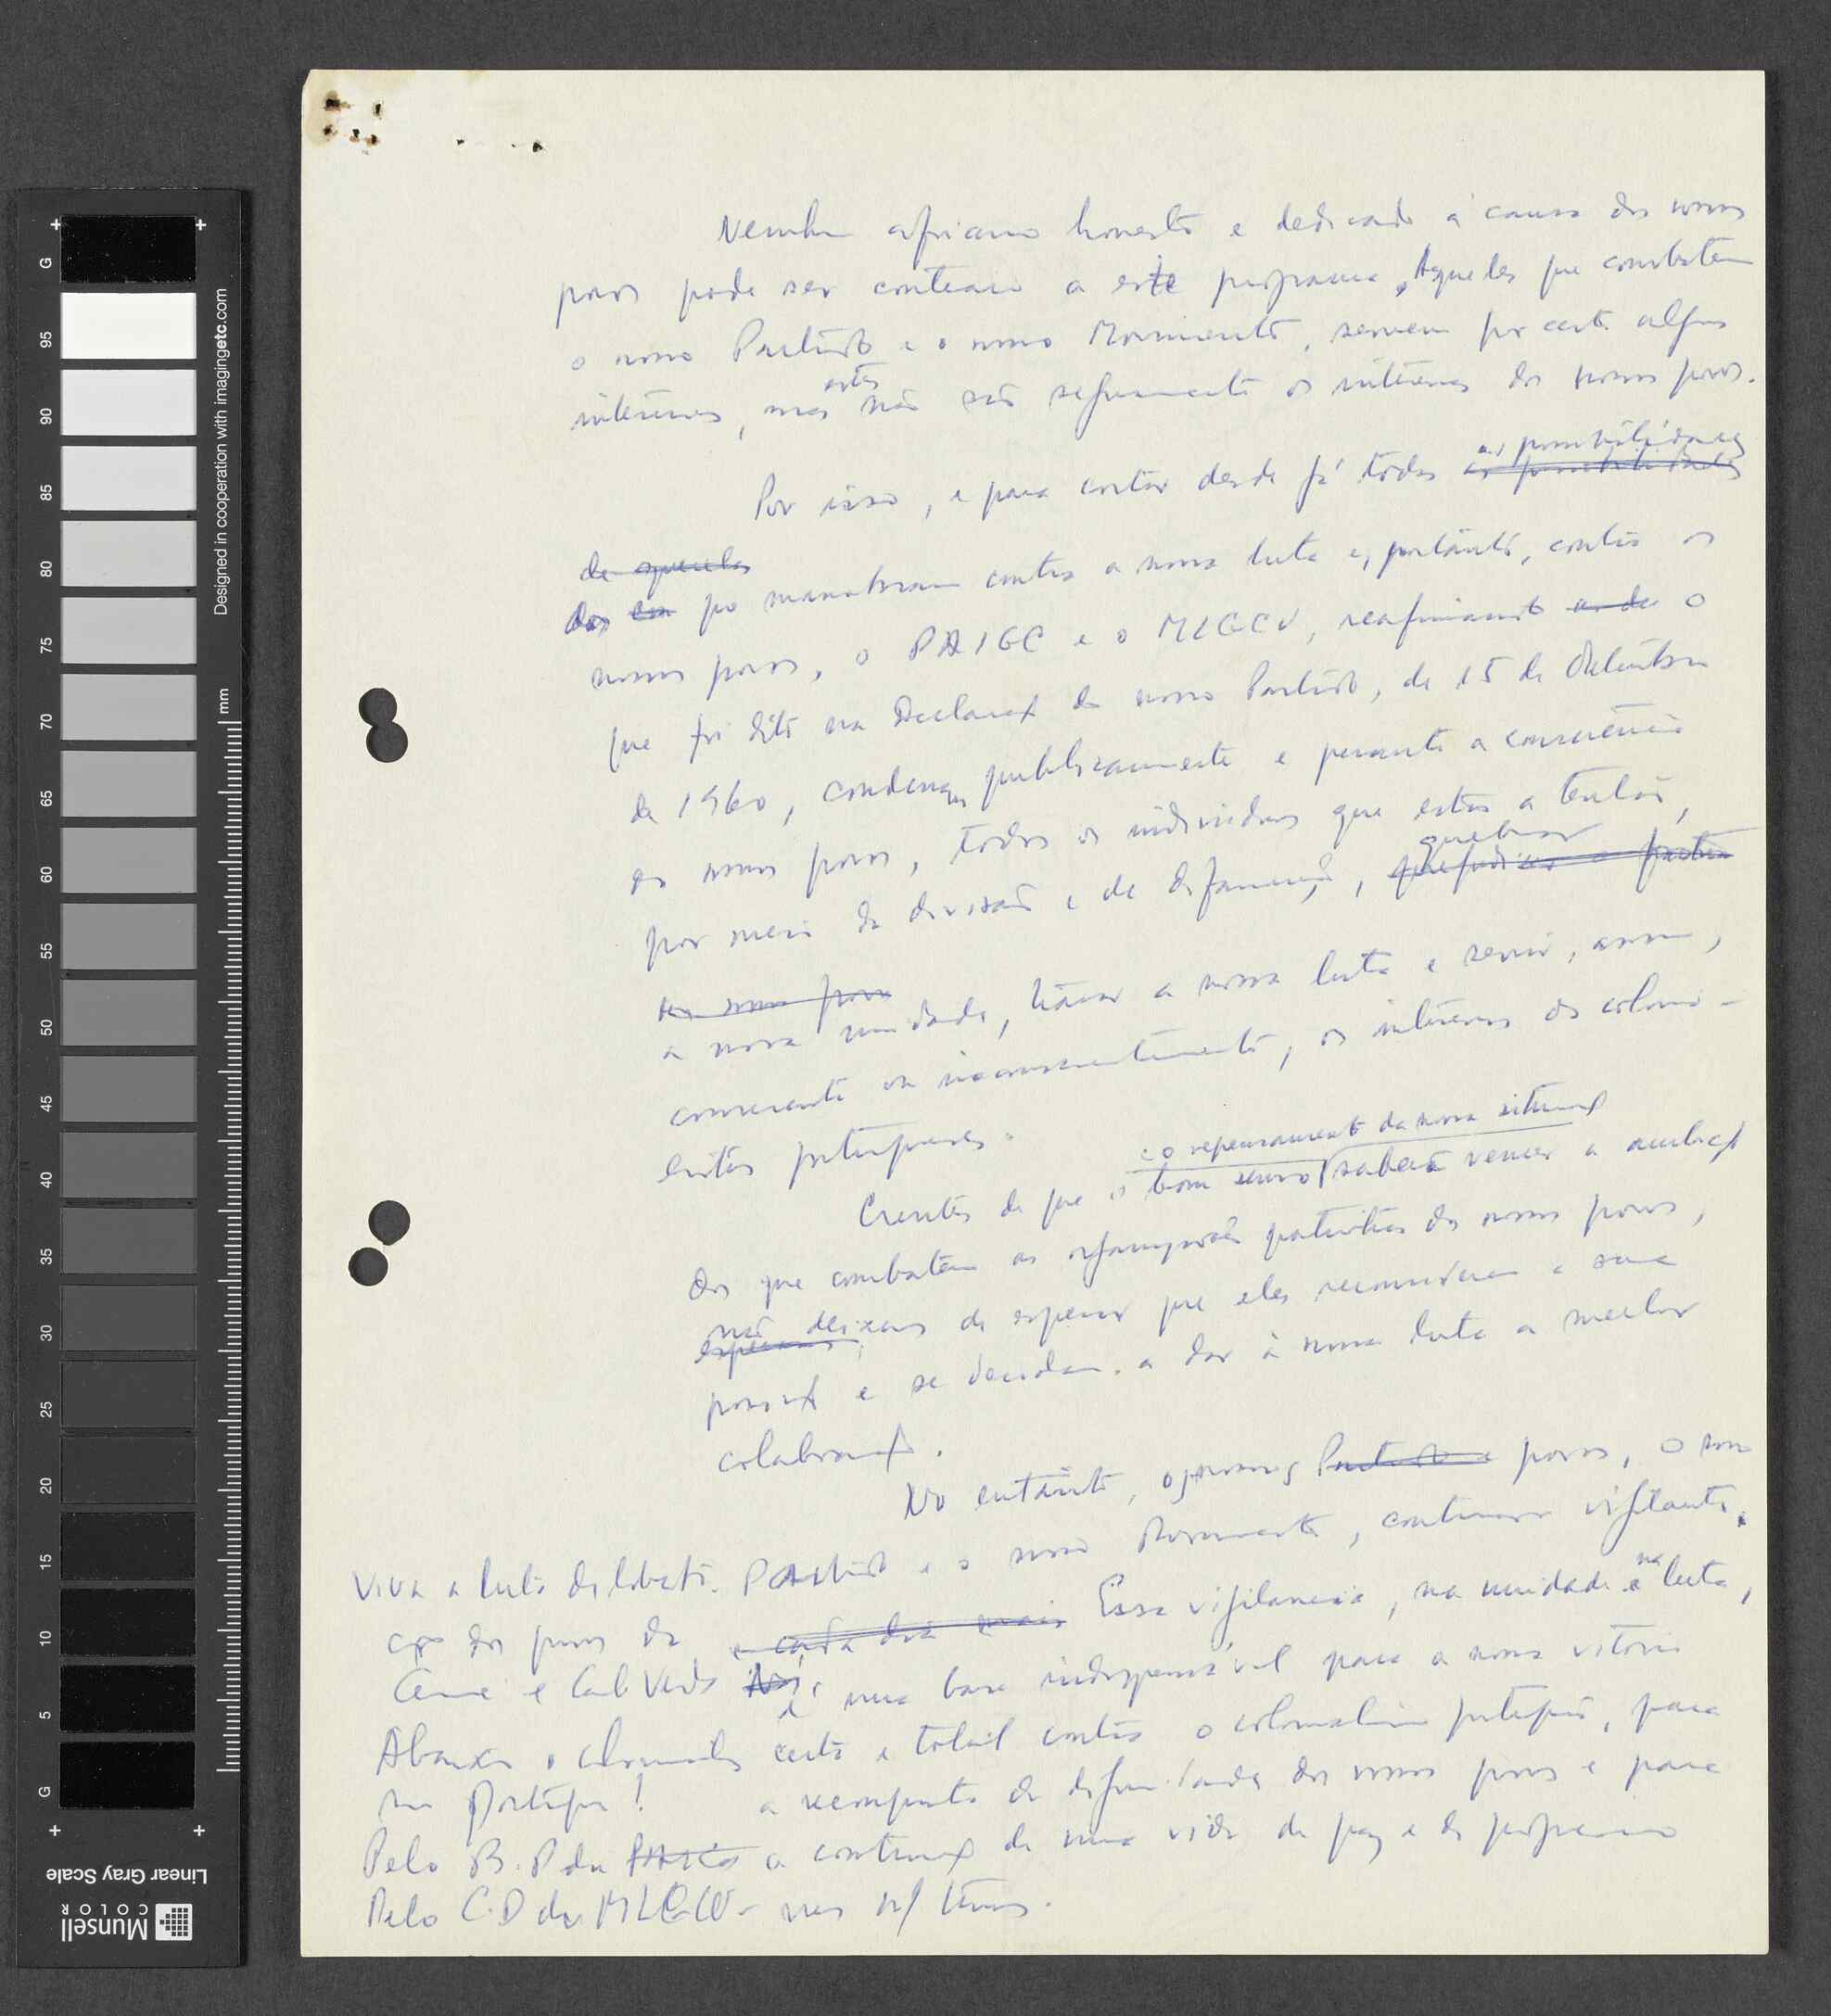 Nenhum africano honesto e dedicado à causa dos nossos
povos pode ser contrário a este programa. Aqueles que combatem
o nosso Partido e o nosso Movimento, servem por certo alguns
estes
interesses, mas não são seguramente os interesses dos nossos povos.
as possibilidades
Por isso, e para cortar desde já todas as possibilidades
de aqueles
dos que manobram contra a nossa luta e, portanto, contra os
nossos povos, o PAIGC e o MLGCV, reafirmando o
que foi dito na Declaração do nosso Partido, de 15 de
de 1960, condenam publicamente e perante a consciência
dos nossos povos, todos os indivíduos que estão a tentar,
quebrar
por meio da divisão e da difamação,
a nossa unidade, travar a nossa luta e servir, assim,
consciente ou inconscientemente, os interesses dos colonia-
listas portugueses.
e o repensamento da nossa situação
Crentes de que o bom senso saberá vencer a ambição
dos que combatem as organizações patrióticas dos nossos povos,
não deixamos de esperar que eles reconsiderem a sua
esperamos
posição e se decidam a dar à nossa luta a melhor
colaboração.
No entanto, os nossos Partido e povos, o nosso
Partido e o nosso Movimento, continuam vigilantes.
e cada dia mais Essa vigilância, na unidade e na luta,
é uma base indispensável para a nossa vitória
certa e total contra o colonialismo português, para
a reconquista da dignidade dos nossos povos e para
a construção de uma vida de paz e de progresso
nas n/ terras.
Viva a luta de liberta-
ção dos povos da
Guiné e Cabo Verde
Abaixo o colonialis-
mo Português!
Pelo B.P. do PAIGC
Pelo C.D. do MLGCV-
Designed in cooperation with imagingetc.com
mm
G
95
90
85
80
75
70
65
60
55
50
45
40
35
30
25
20
15
10
5
G
Linear Gray Scale
Munsell
COLOR